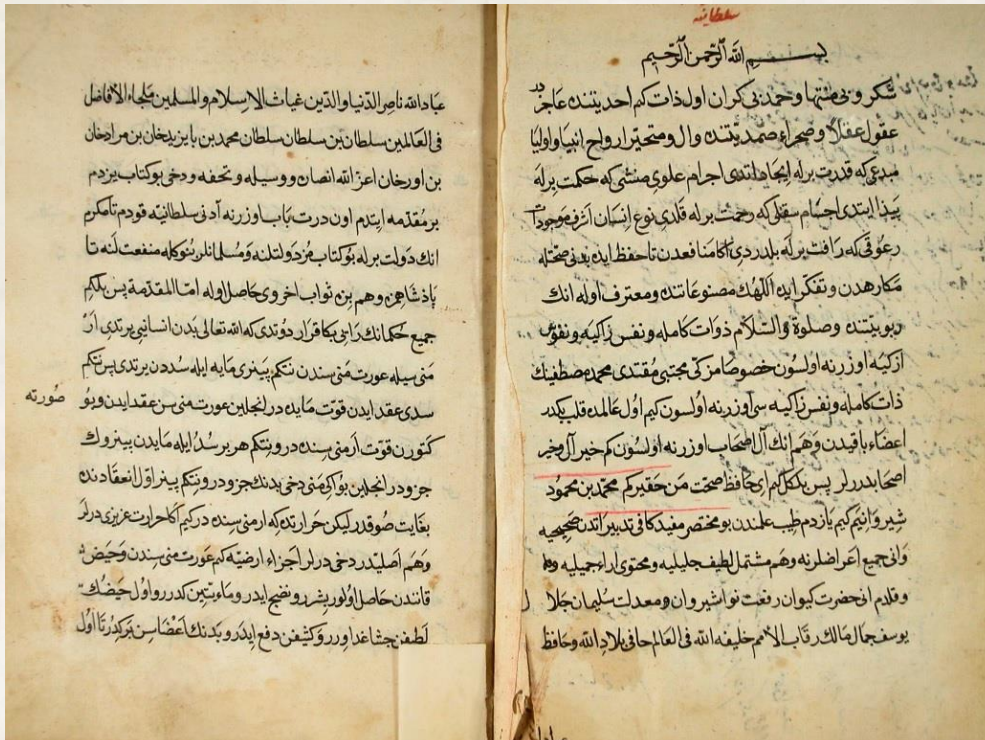 سلطانیه
بسم الله الرحمن الرحیم
شکر و بی منتها و حمد بی کران اول ذات کم احدیتنده عاجز در
عقول عقلا و صحراء صمدیتنده وال و متحیر ارواح انبیا و اولیا
مبدعی که قدرت برله ایجاد ایتدی اجرام علوی منشی که حکمت برله
پیدا ایتدی اجسام سفلی که رحمت برله قلدی نوع انسان اشرف موجودات
رعوفی که رافت برله بلدردی اکا منافعدن تا حفظ ایده بدنی صحتله
مکارهدن و تفکر ایده اللهک مصنوعاتنده و معترف اوله انک
ربوبیتنده و صلوة و السلام ذوات کامله و نفس زاکیه و نفوس
ازکیه اوزرنه اولسون خصوصا مزکی مجتبی مقتدی محمد مصطفینک
ذات کامله و نفس زاکیه سی اوزرنه اولسون کیم اول عالمده قلب یکدر
اعضاء باقیدن و هم انک آل اصحاب اوزرنه اولسون کم خیر آل و خیر
اصحابدرلر پس بلکل کم ای حافظ صحت من حقیر کم محمد بن محمود
شیروانیم کیم یازدم طب علمندن بو مختصر مفید کافی تدبیراتدن صحیحیه
وانی جمیع اعراضلرنه وهم مشتمل لطیف جلیلیه و محتوی اراء جمیلیه
وقلدم انی حضرت کیوان رفعت نواشیروان و معدلت سلیمان جلا
یوسف جمال مالک رقاب الامم خلیفه الله فی العالم حافی بلاد الله و حافظ
عباد الله ناصر الدنیا و الدین غیاث الاسلام و المسلمین ملجاء الافاضل
فی العالمین سلطان بن سلطان سلطان محمد بن بایزید خان بن مراد خان
بن اورخان اعز الله انصاره و وسیله و تحفه و دخی بو کتاب یزدم
بر مقدمه ایتدم اون درت باب اوزرنه آدنی سلطانیه قودم تا مکرم
انک دولت برله بو کتاب مزدولتلنه و مسلمانلر بنوکله منفعت لنه تا
پادشاهمن وهم بنه ثواب اخروی حاصل اوله اما المقدمة پس بلکم
جمیع حکمانک رایی بکا قرار دوتدی که الله تعالی بدن انسانیی یرتدی ار
منی سیله عورت منی سندن نتکم پینری مایه ایله سددن یرتدی پس نتکم
سدی عقد ایدن قوت مایه در انجلین عورت منی سن عقد ایدن و بو
کتورن قوت ار منی سنده درو نتکم هر بر سد ایله مایدن پینروک
جزودر انجلین بو اکی منی دخی بدنک جزودر و نتکم پینر اول انعقادنده
بغایت صوقدر لیکن حرارتدکه ار منی سنده در کیم اکا حرارت عزیزی درلر
وهم اصلیدر دخی درلر اجزاء ارضیه کم عورت منی سندن و حیض
قانندن حاصل اولور پشرر و نضج ایدر و ماءیتین کدررو اول حیضک
لطفن جشاغد اورر و کشفن دفع ایدر و بدنک اعضاسن برکدر تا اول
صورته